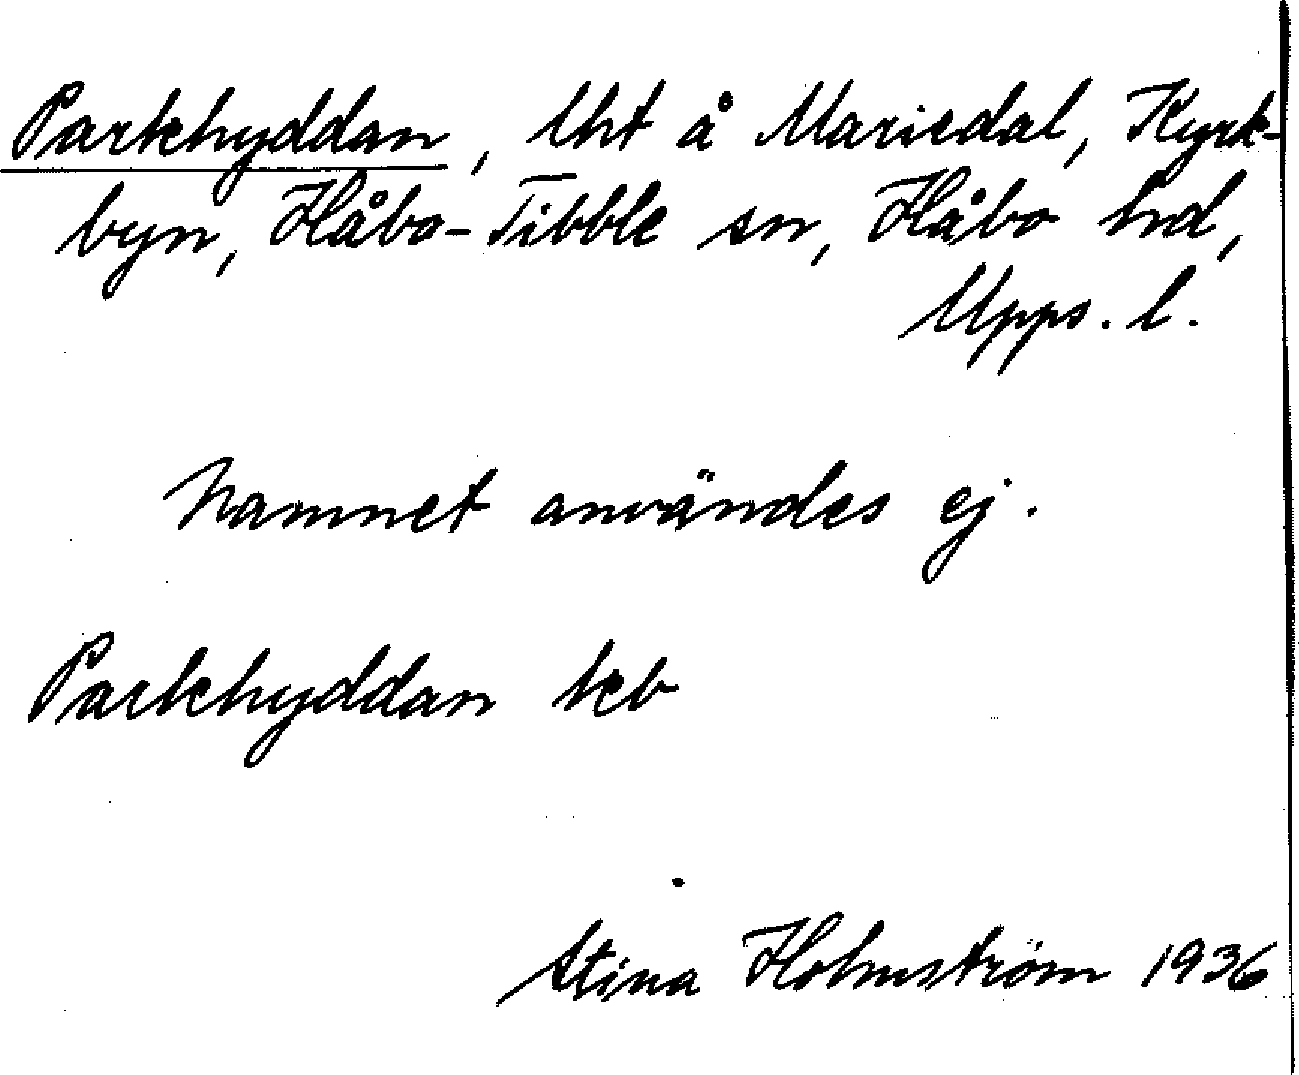 Parkhyddan, lht å Mariedal, Kyrk-
byn, Håbo-Tibble sn, Håbo hd,
Upps. l.
Namnet användes ej.
Parkhyddan keb
Stina Holmström 1936